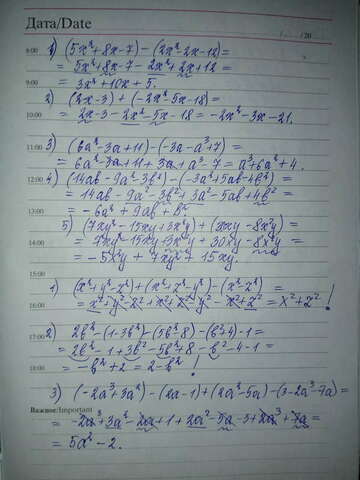 Дата/Date
/ /20
8:00 1) (5x²+8x-7)-(2x²-2x-12)=
= 5x²+8x-7-2x²+2x+12=
9:00 = 3x²+10x+5.
2) (2x-3)+(-2x²-5x-18)=
10:00 = 2x-3-2x²-5x-18=-2x²-3x-21.
11:00 3) (6a²-3a+11)-(-3a-a³+7)=
= 6a²-3a+11+3a+a³-7=a³+6a²+4.
12:00 4) (14ab-9a²-3b²)-(-3a²+5ab-4b²)=
= 14ab-9a²-3b²+3a²-5ab+4b²=
13:00 = -6a²+9ab+b².
5) (7xy²-15xy+3x²y)+(30xy-8x²y)=
14:00 = 7xy²-15xy+3x²y+30xy-8x²y=
= -5x²y+7xy²+15xy.
15:00
1) (x²+y²-z²)+(x²+z²-y²)-(x²-z²)
16:00 = x²+y²-z²+x²+z²-y²-x²+z²=x²+z²!
17:00 2) 2b²-(1-3b²)-(5b²-8)-(b²+4)-1=
= 2b²-1+3b²-5b²+8-b²-4-1=
18:00 = -b²+2=2-b²!
3) (-2a³+3a²)-(2a-1)+(2a²-5a)-(3-2a³-7a)=
Важное/Important
= -2a³+3a²-2a+1+2a²-5a-3+2a³+7a=
= 5a²-2.